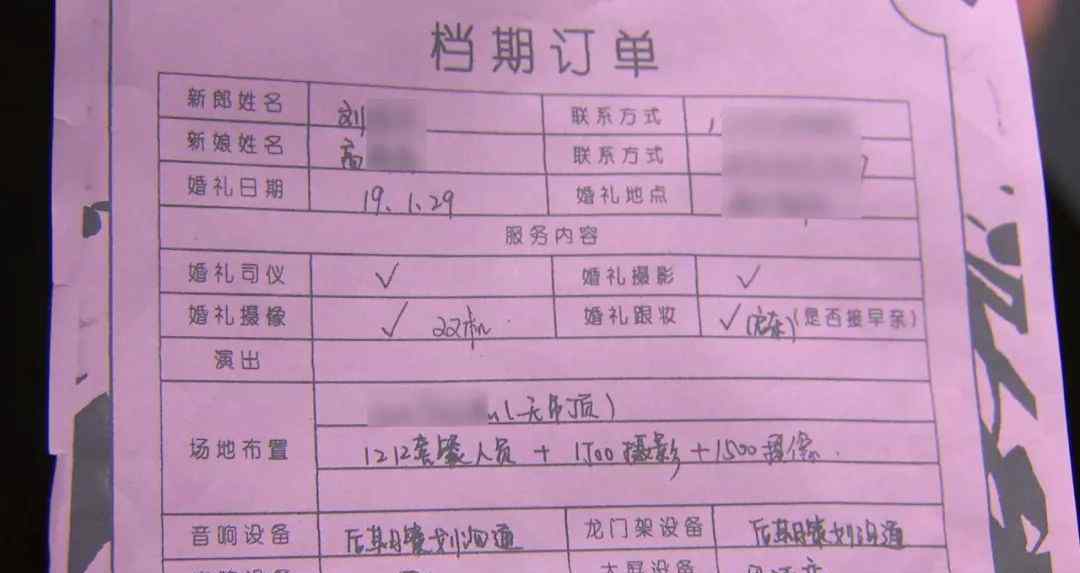 档期订单
新郎姓名 刘 联系方式
新娘姓名 高 联系方式
婚礼日期 19.1.29 婚礼地点
服务内容
婚礼司仪 ✓ 婚礼摄影 ✓
婚礼摄像 ✓ 双机 婚礼跟妆 ✓ (是否接早亲)
演出
场地布置 (无吊顶)
1212套餐人员 + 1500摄影 + 1500摄像
音响设备 后期策划沟通 龙门架设备 后期策划沟通
大屏设备